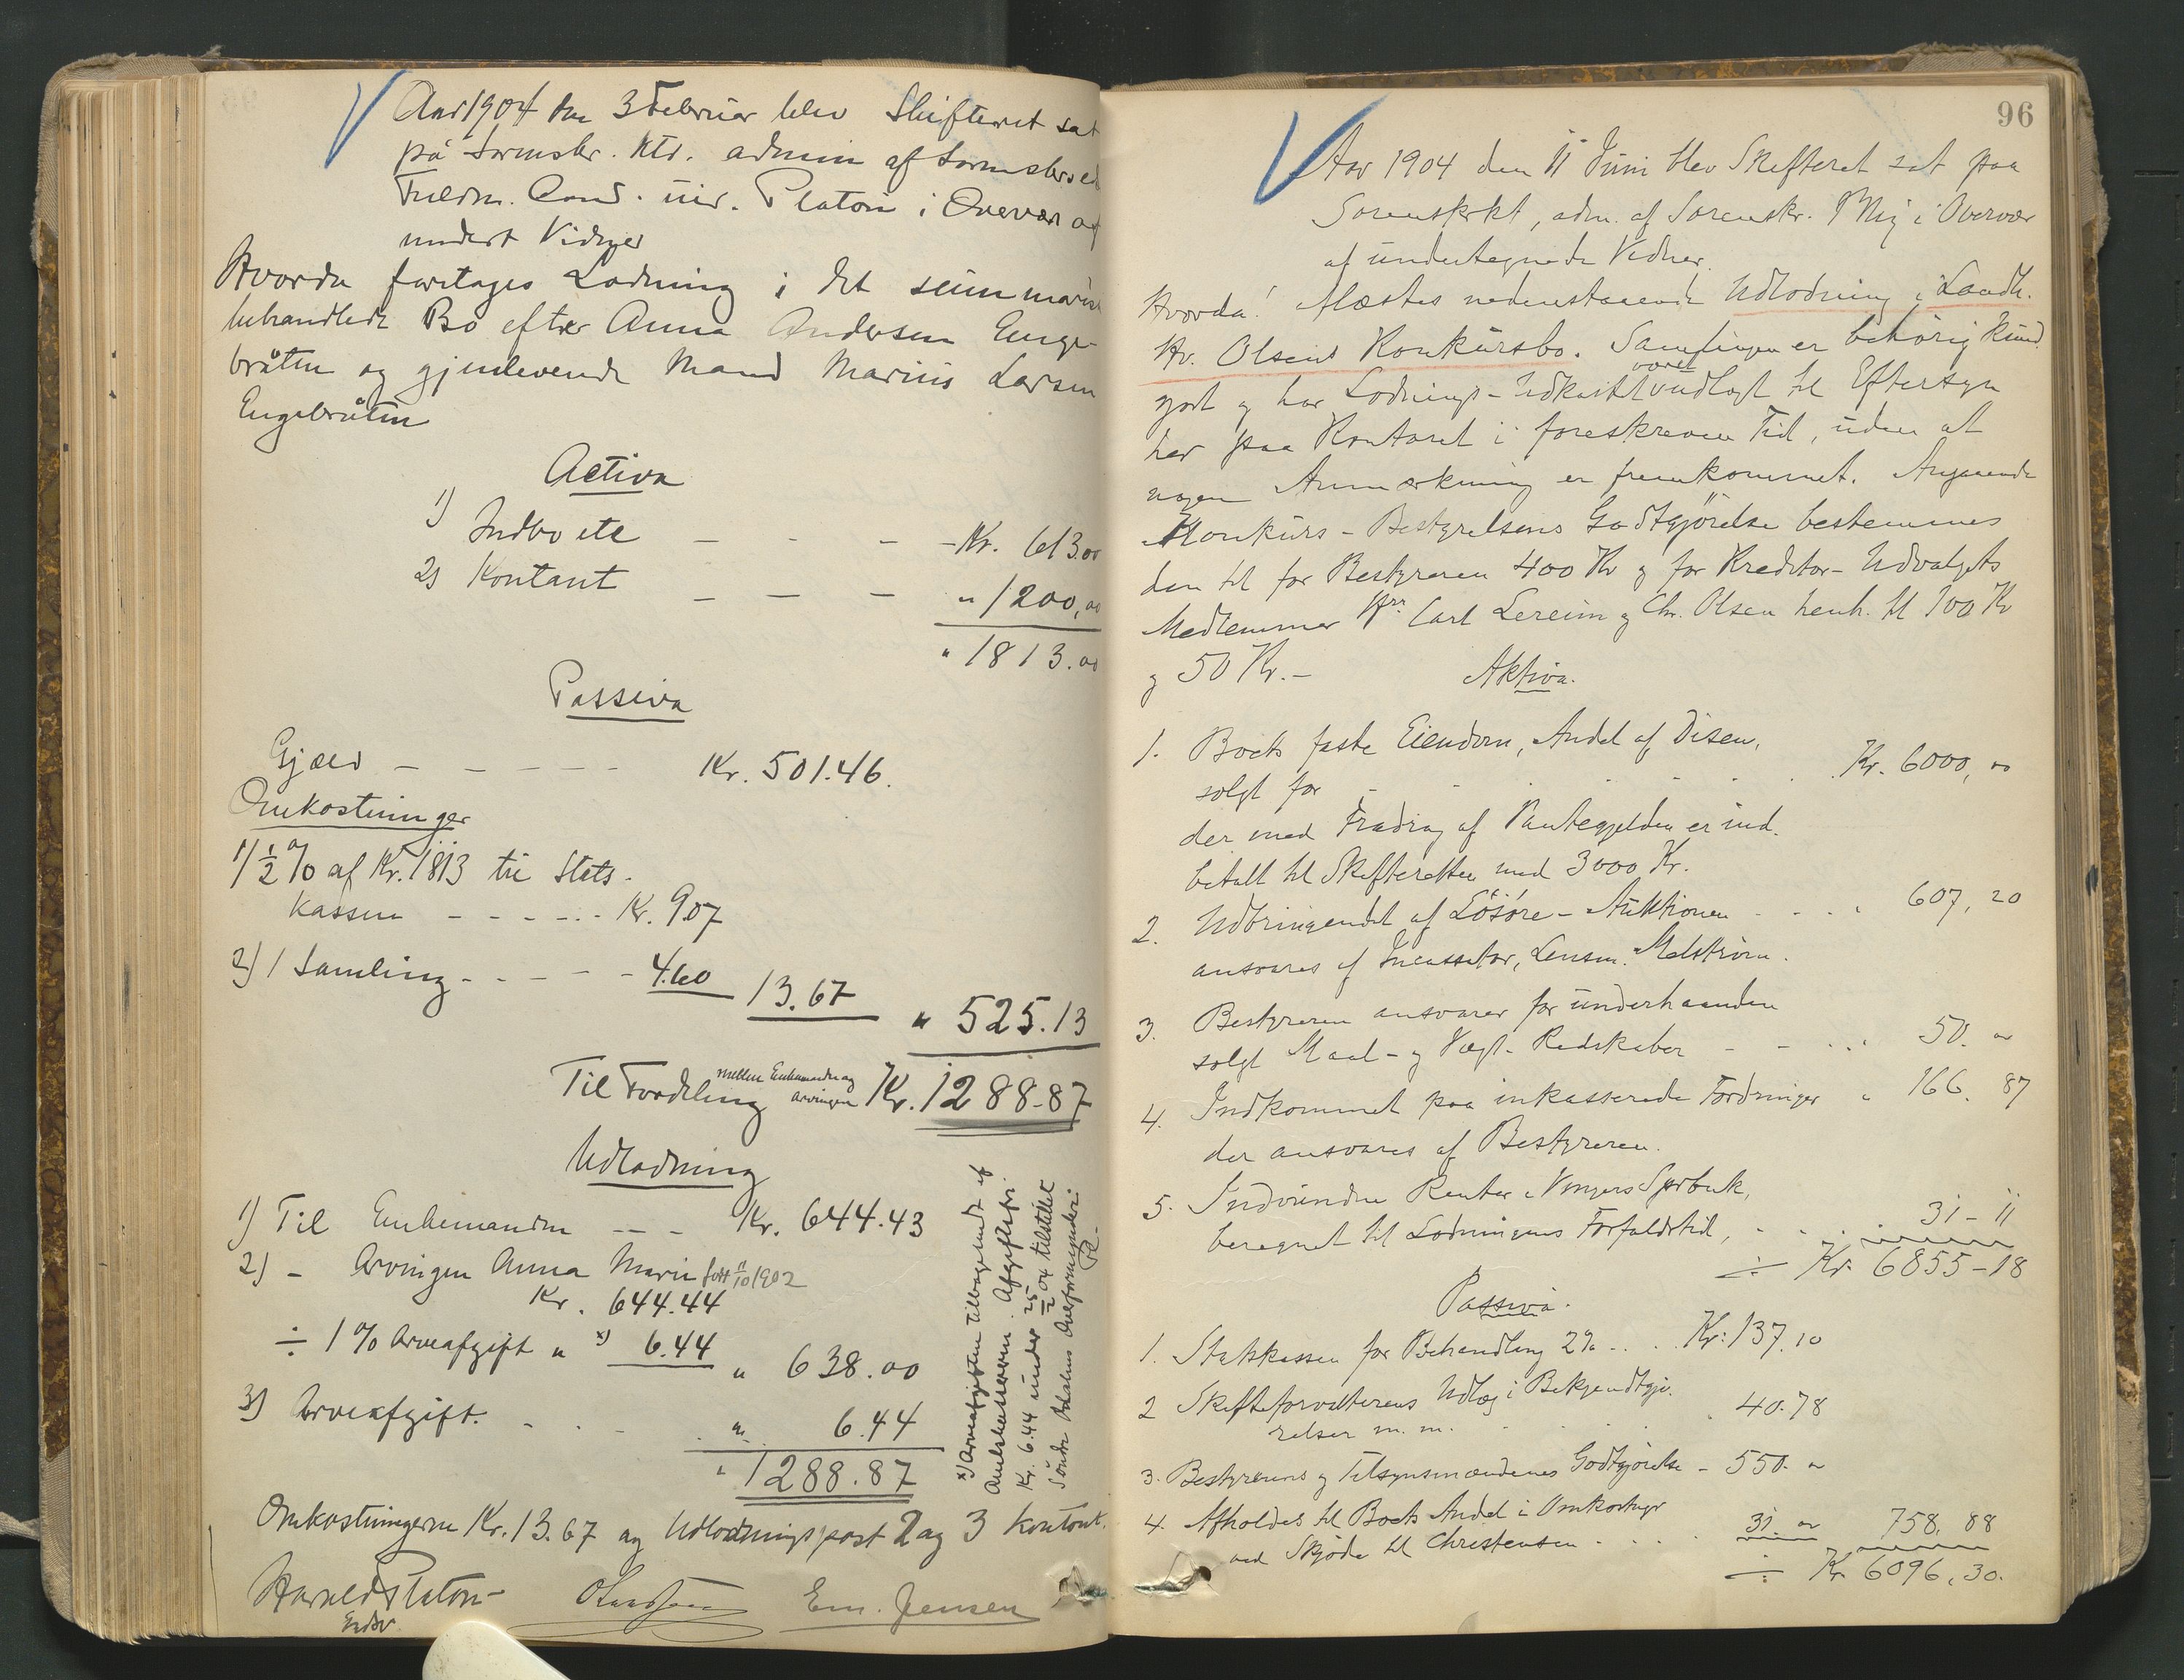 Aar 1904 den 3 Februar blev Skifteret sat
på Sornskr. Ktr. admin af Sornskrverens
Fuldm. Cand. jur. Platou i Overvær af
undert Vidner
Hvorda foretages Lodning i det summarisk
behandlede Bo efter Anna Andersen Enge-
bråten og gjenlevende Mand Marius Larsen
Engebråten
Activa
1) Indbo etc - - - - Kr. 613.00
2) Kontant - - - " 1200,00
" 1813.00
Passiva
Gjæld - - - - - Kr. 501.46.
Omkostninger
1) ½ % af Kr. 1813 til Stats-
kassen - - - - - Kr. 907
2) 1 Samling - - - - - 4.60 13.67 " 525.13
Til Fordeling mellem Enkemanden og arvingen Kr. 1288-87
Udlodning
1) Til Enkemanden - - - Kr. 644.43
2) - Arvingen Anna Marie født 11/10 1902
Kr. 644.44
÷ 1 % Arveafgift " x) 6.44 " 638.00
3) Arveafgift. - - - " 6.44
" 1288.87
x) Arveafgiften tilbagesendt af
Amtskassereren. Afgiftsfri.
Kr. 6.44 under 25/2 04 tilstillet
Søndre Odalens Overformynderi
Pl-
Omkostningerne Kr. 13.67 og Udlodningspost 2 og 3 kontant.
Harald Platou
Em. Jensen
96
Aar 1904 den 11 Juni blev Skifteret sat paa
Sorenskrkt, adm. af Sorenskr. i Overvær
af undertegnede Vidner.
Hvorda! Mæstes nedenstaaende Udlodning i Landh.
Hr. Olsens Konkursbo. Samlingen er behørig kund
gjort og har Lodnings-Udkastet været udlagt til Eftersyn
her paa Kontoret i foreskreven Tid, uden at
nogen Anmærkning er fremkommet. Angaaende
Konkurs-Bestyrelsens Godtgjörelse bestemmes
den til for Bestyreren 400 Kr og for Kreditor-Udvalgets
Medlemmer Hrr. Carl Lereim og Chr. Olsen henh. til 100 Kr
og 50 Kr.-
Aktiva.
1. Boets faste Eiendom, Andel af Disen,
solgt for - . . . . . Kr. 6000,00
der med Fradrag af Pantegjelden er ind-
betalt til Skifteretten med 3000 Kr.
2. Udbringendet af Lösöre-Auktionen - . . . " 607,20
ansvares af Incassator, Lensm. Melström.
3. Bestyreren ansvarer for underhaanden
solgt Maal- og Vægt-Redskaber - - . . " 50. 00
4. Indkommet paa inkasserede Fordringer " 166. 87
der ansvares af Bestyreren.
5. Indvundne Renter i Vingers Sprbnk,
beregnet til Lodningens Forfaldstid, - . . . . 31-11
÷ Kr. 6855-18
Passiva.
1. Statskassen for Behandling 2% - . . . Kr: 137.10
2 Skifteforvalterens Udlæg i Bekjendtgjø-
relser m. m. . . . . 40.78
3. Bestyrerens og Tilsynsmændenes Godtgjörelse - 550. 00
4. Afholdes til Boets Andel i Omkostngr
ved Skjöde til Christensen . . . . 31. 00 758. 88
÷ Kr 6096,30.